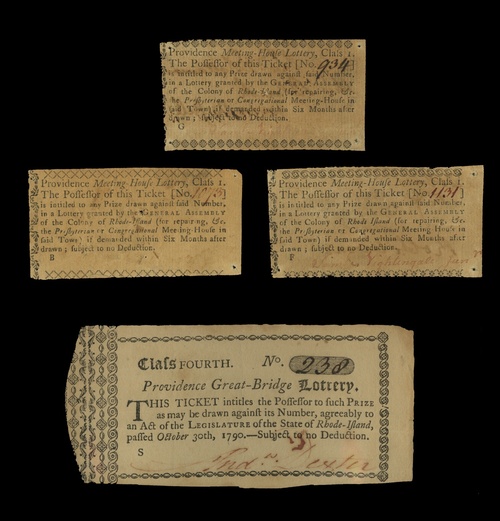 Providence Meeting-House Lottery, Claſs 1.
The Poſſeſſor of this Ticket [No. 934
is intitled to any Prize drawn againſt ſaid Number,
in a Lottery granted by the GENERAL ASSEMBLY
of the Colony of Rhode-Iſland (for repairing, &c.
the Preſbyterian or Congregational Meeting-Houſe in
ſaid Town) if demanded within Six Months after
drawn; ſubject to no Deduction.
G
Providence Meeting-Houſe Lottery, Claſs 1.
The Poſſeſſor of this Ticket [No.
is intitled to any Prize drawn againſt ſaid Number,
in a Lottery granted by the GENERAL ASSEMBLY
of the Colony of Rhode-Iſland (for repairing, &c.
the Preſbyterian or Congregational Meeting-Houſe in
ſaid Town) if demanded within Six Months after
drawn; ſubject to no Deduction.
B
Providence Meeting-Houſe Lottery, Claſs 1.
The Poſſeſſor of this Ticket [No. 1131]
is intitled to any Prize drawn againſt ſaid Number,
in a Lottery granted by the GENERAL ASSEMBLY
of the Colony of Rhode-Iſland (for repairing, &c.
the Preſbyterian or Congregational Meeting-Houſe in
ſaid Town) if demanded within Six Months after
drawn; ſubject to no Deduction.
F
Claſs FOURTH. No. 238
Providence Great-Bridge Lottery.
THIS TICKET intitles the Poſſeſſor to ſuch PRIZE
as may be drawn againſt its Number, agreeably to
an Act of the LEGISLATURE of the State of Rhode-Iſland,
paſſed October 30th, 1790.—Subject to no Deduction.
S
Andw. Dexter